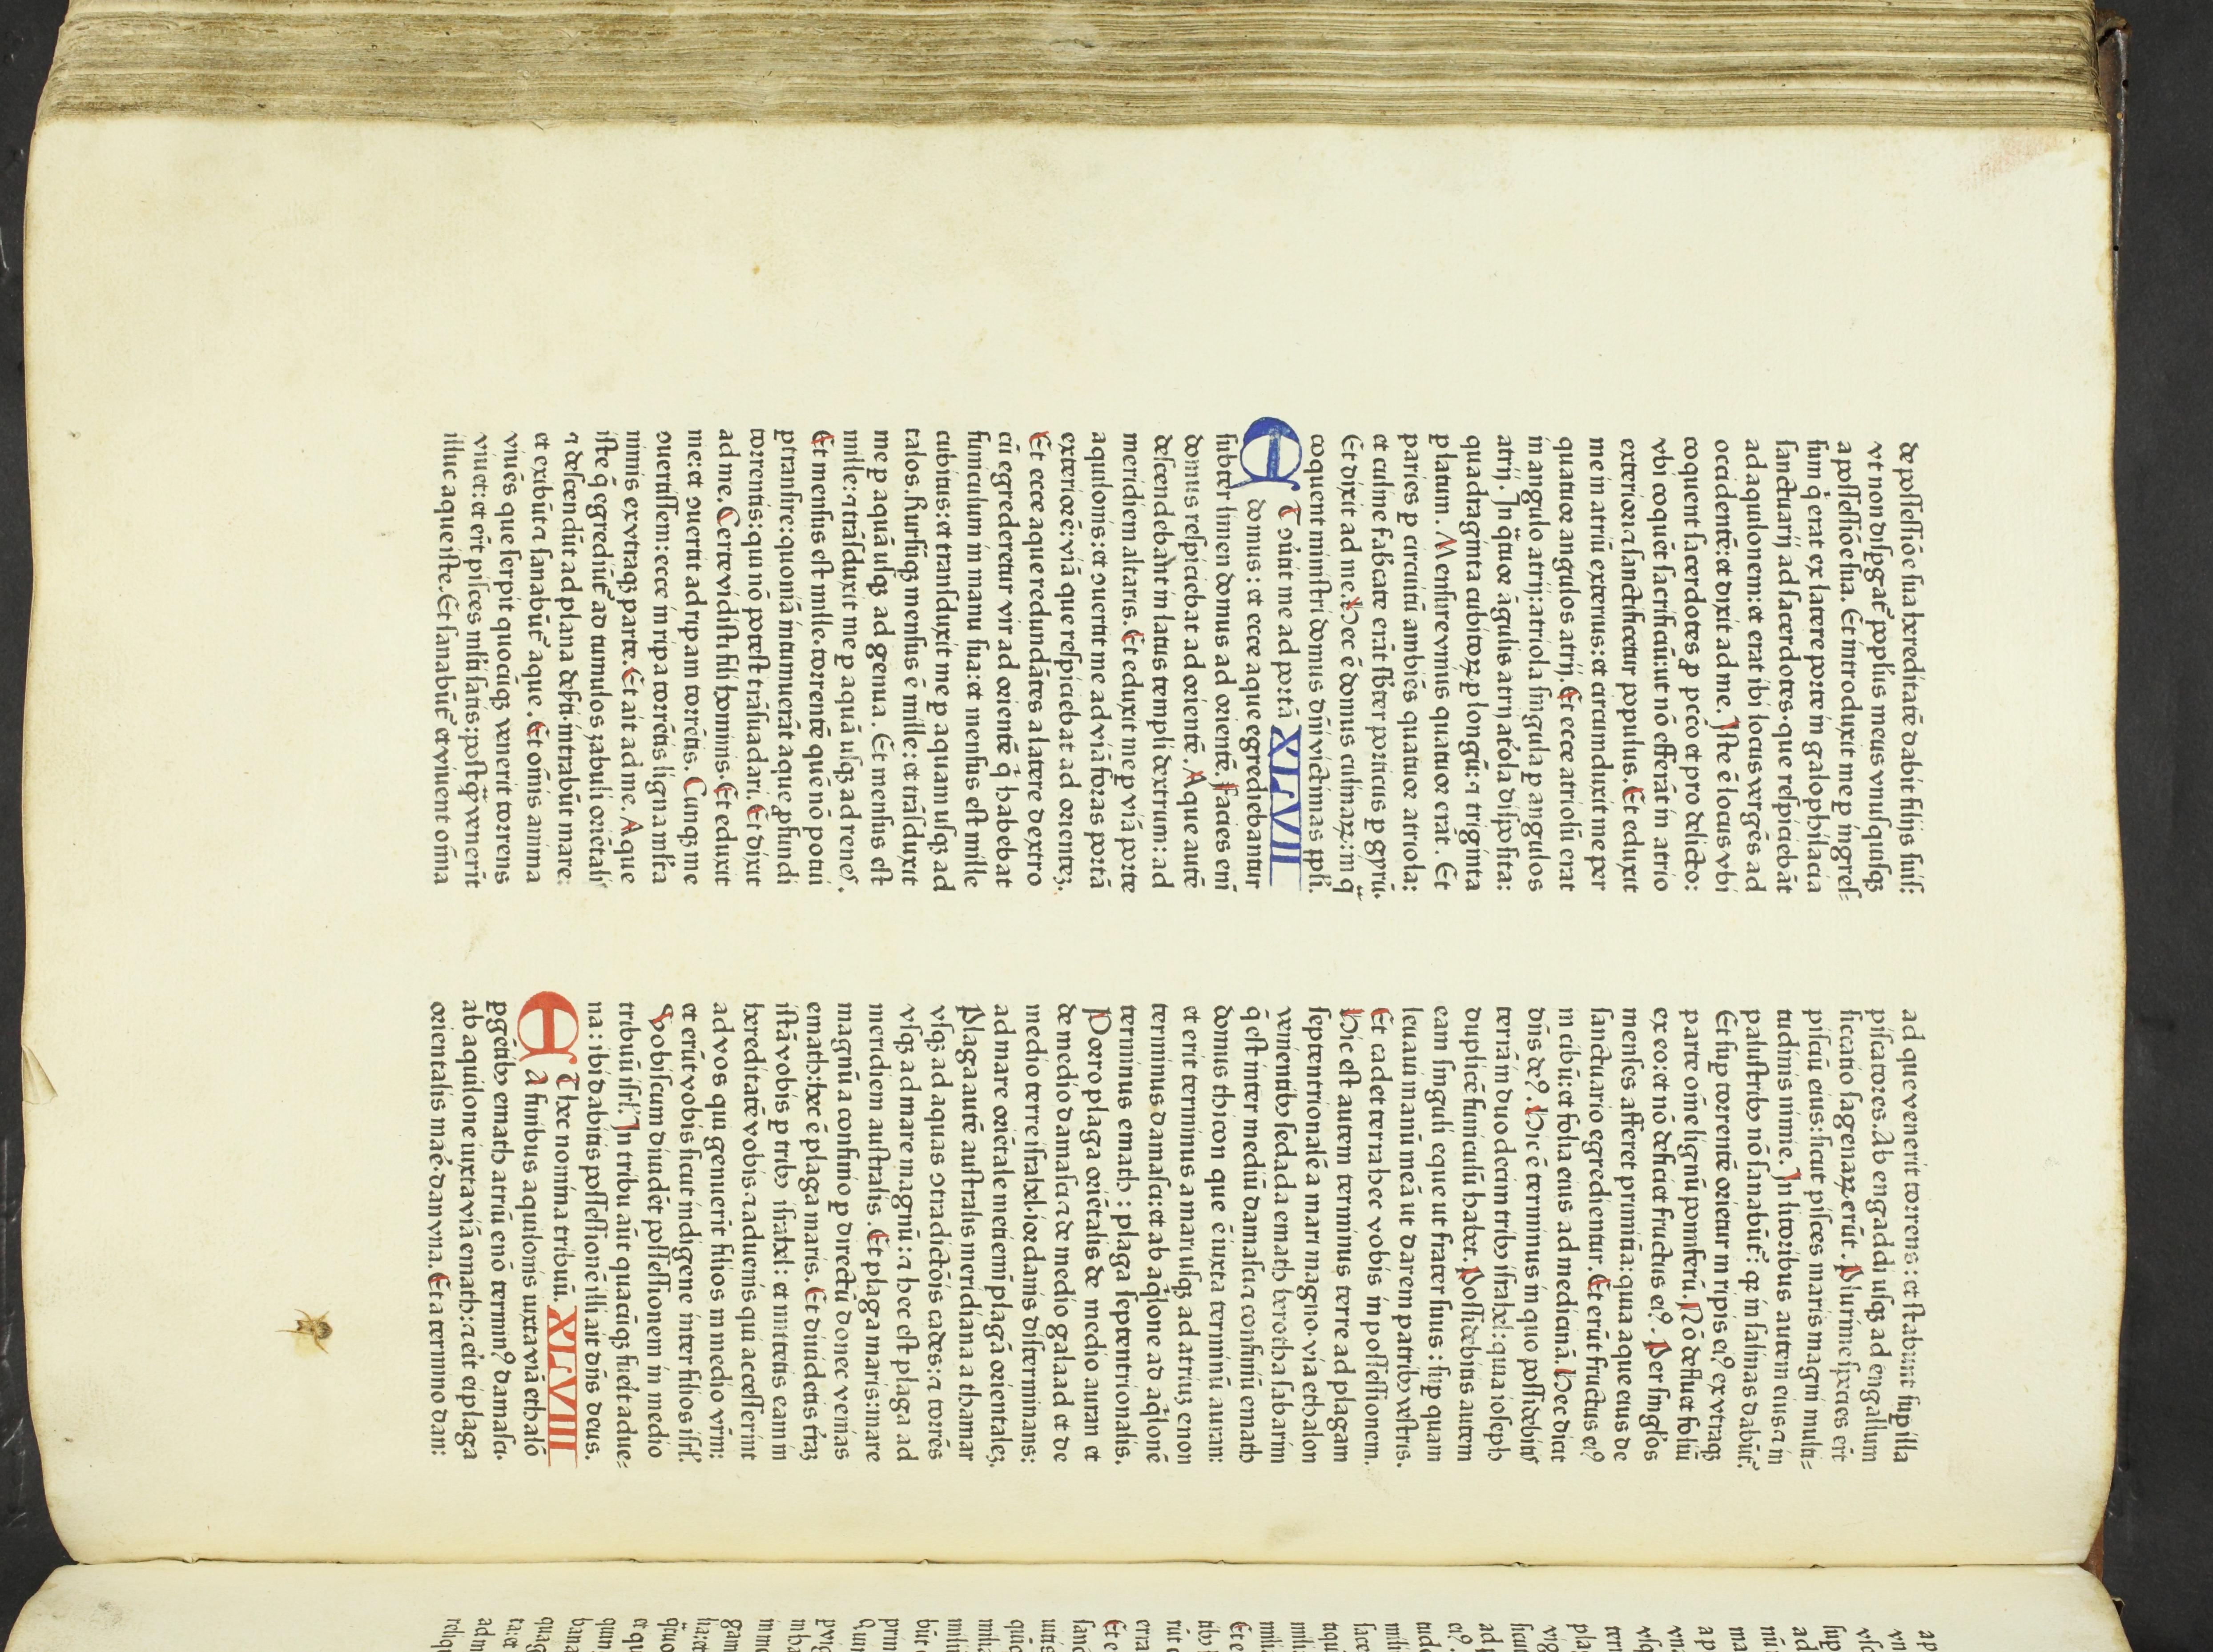 de possessiōe sua hereditatē dabit filijs suis:
vt non disꝑgat᷑ ꝓpl̓us meus vnusquisqꝫ
a possessiōe sua. Et introduxit me ꝑ ingres⸗
sum q̇ erat ex latere porte in gazophilacia
sanctuarij ad sacerdotes. que respiciebāt
ad aquilonem: et erat ibi locus vergēs ad
occidentē: et dixit ad me. Iste ē locus vbi
coquent sacerdotes ꝓ pcc̄o et pro delicto:
vbi coquēt sacrificiū: ut nō efferāt in atrio
exteriori ⁊ sanctificetur populus. Et eduxit
me in atriū exterius: et circumduxit me per
quatuor angulos atrij. Et ecce atriolū erat
in angulo atrij: atriola singula ꝑ angulos
atrij. In q̈tuor āgulis atrij at̓ola disposita:
quadraginta cubitoꝝ ꝑ longū: ⁊ triginta
ꝑ latum. Mensure vnius quatuor erāt. Et
paries ꝑ circuitū ambiēs quatuor atriola:
et culine fab̓cate erāt sb̓ter porticus ꝑ gyrū.
Et dixit ad me. Hec ē domus culinaꝝ: in q̈
coquent ministri domus dn̄i victimas ꝓpl̓i.
ET ꝯu̓tit me ad portā XLVII
domus: et ecce aque egrediebantur
subter limen domus ad orientē. Facies em̄
domus respiciebat ad orientē. Aque autē
descendebant in latus templi dextrum: ad
meridiem altaris. Et eduxit me ꝑ viā porte
aquilonis: et ꝯuertit me ad viā foras portā
exteriorē: viā que respiciebat ad orientez.
Et ecce aque redundātes a latere dextro
cū egrederetur vir ad orientē q̇ habebat
funiculum in manu sua: et mensus est mille
cubitus: et transduxit me ꝑ aquam usqꝫ ad
talos. Rursūqꝫ mensus ē mille: et trāsduxit
me ꝑ aquā usqꝫ ad genua. Et mensus est
mille: ⁊ trāsduxit me ꝑ aquā usqꝫ ad renes.
Et mensus est mille. torrentē quē nō potui
ꝑtransire: quoniā intumuerāt aque ꝓfundi
torrentis: qui nō potest trāsuadari. Et dixit
ad me. Certe vidisti fili hominis. Et eduxit
me: et ꝯuertit ad ripam torrētis. Cunqꝫ me
ꝯuertissem: ecce in ripa torrētis ligna ml̓ta
nimis ex vtraqꝫ parte. Et ait ad me. Aque
iste q̄ egrediūt᷑ ad tumulos zabuli oriētalis
⁊ descendūt ad plana des̓ti. intrabūt mare:
et exibūt ⁊ sanabūt᷑ aque. Et om̄is anima
viuēs que serpit quocūqꝫ venerit torrens
viuet: et er̄t pisces ml̓ti satis: postq̈ȝ venerīt
illuc aque iste. Et sanabūt᷑ et viuent om̄ia
ad que venerit torrens: et stabunt suꝑ illa
piscatores. Ab engaddi usqꝫ ad engallum
siccatio sagenaꝝ erūt. Plurime species er̄t
pisciū eius: sicut pisces maris magni multi⸗
tudinis nimie. In litoribus autem eius ⁊ in
palustribꝫ nō sanabūt᷑: qꝛ in salinas dabūt᷑.
Et suꝑ torrentē orietur in ripis ei⁹ ex vtraqꝫ
parte om̄e lignū pomiferū. Nō defluet foliū
ex eo: et nō deficiet fructus ei⁹. Per singl̓os
menses afferet primitia: quia aque eius de
sanctuario egredientur. Et erūt fructus ei⁹
in cibū: et folia eius ad medicinā. Hec dicit
dn̄s de⁹. Hic ē terminus in quo possidebit᷒
terrā in duodecim tribꝫ israhel: quia ioseph
duplicē funiculū habet. Possidebitis autem
eam singuli eque ut frater suus: suꝑ quam
leuaui manū meā ut darem patribꝫ vestris.
Et cadet terra hec vobis in possessionem.
Hic est autem terminus terre ad plagam
septentrionalē a mari magno. via ethalon
venientibꝫ sedada emath berotha sabarim
q̄ est inter mediū damasci ⁊ confiniū emath
domus thicon que ē iuxta terminū auran:
et erit terminus a mari usqꝫ ad atriuȝ enon
terminus damasci: et ab aq̇lone ad aq̇lonē
terminus emath: plaga septentrionalis.
Porro plaga oriētalis de medio auran et
de medio damasci ⁊ de medio galaad et de
medio terre israhel. iordanis disterminans:
ad mare oriētale metiemī plagā orientaleȝ.
Plaga autē australis meridiana a thamar
vsqꝫ ad aquas ꝯtradictōis cades: ⁊ torrēs
vsqꝫ ad mare magnū: ⁊ hec est plaga ad
meridiem australis. Et plaga maris: mare
magnū a confinio ꝑ directū donec venias
emath: hec ē plaga maris. Et diuidetis t̓raȝ
istā vobis ꝑ tribꝫ israhel: et mittetis eam in
hereditatē vobis ⁊ aduenis qui accesserint
ad vos qui genuerīt filios in medio vr̄m:
et erūt vobis sicut indigene inter filios isrl̓.
Vobiscum diuidēt possessionem in medio
tribuū isrl̓. In tribu aūt quacūqꝫ fu̓it adue⸗
na: ibi dabitis possessionē illi ait dn̄s deus.
ET hec nomina tribuū. XLVIII
A finibus aquilonis iuxta viā ethalō
ꝑgētibꝫ emath atriū enō termin⁹ damasci.
ab aquilone iuxta viā emath: ⁊ er̓it ei plaga
orientalis mar̓e. dan vna. Et a termino dan: